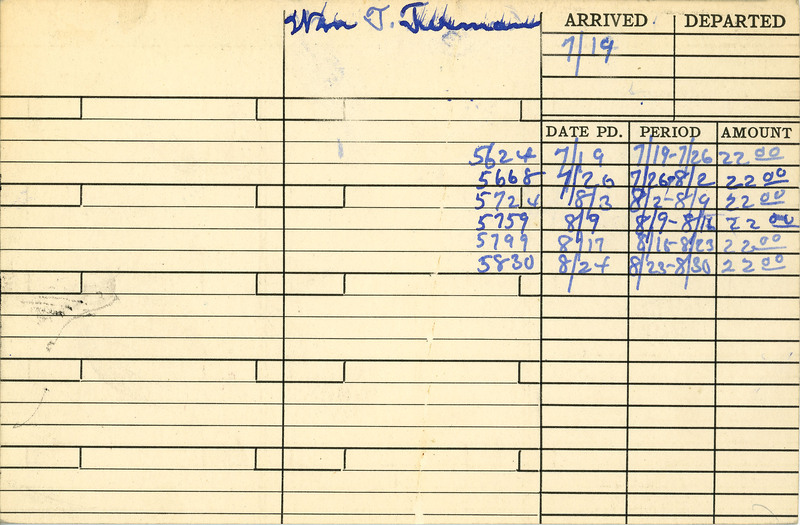 Wm T. ARRIVED DEPARTED
7/19
DATE PD. PERIOD AMOUNT
5624 7/19 7/19-7/26 22 00
5668 7/26 7/26-8/2 22 00
5724 8/3 8/2-8/9 22 00
5759 8/9 8/9-8/16 22 00
5799 8/17 8/16-8/23 22.00
5830 8/24 8/23-8/30 22 00